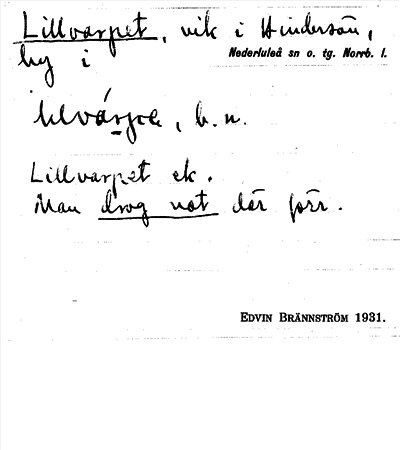 Lillvarpet, vik i Hindersön,
by i
Nederluleå sn o. tg. Norrb. l.
, b. n.
Lillvarpet ek.
Man drog not där förr.
EDVIN BRÄNNSTRÖM 1931.